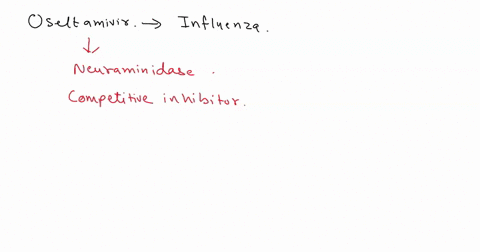 Oseltamivir. → Influenza.
↓
Neuraminidase.
Competitive inhibitor.